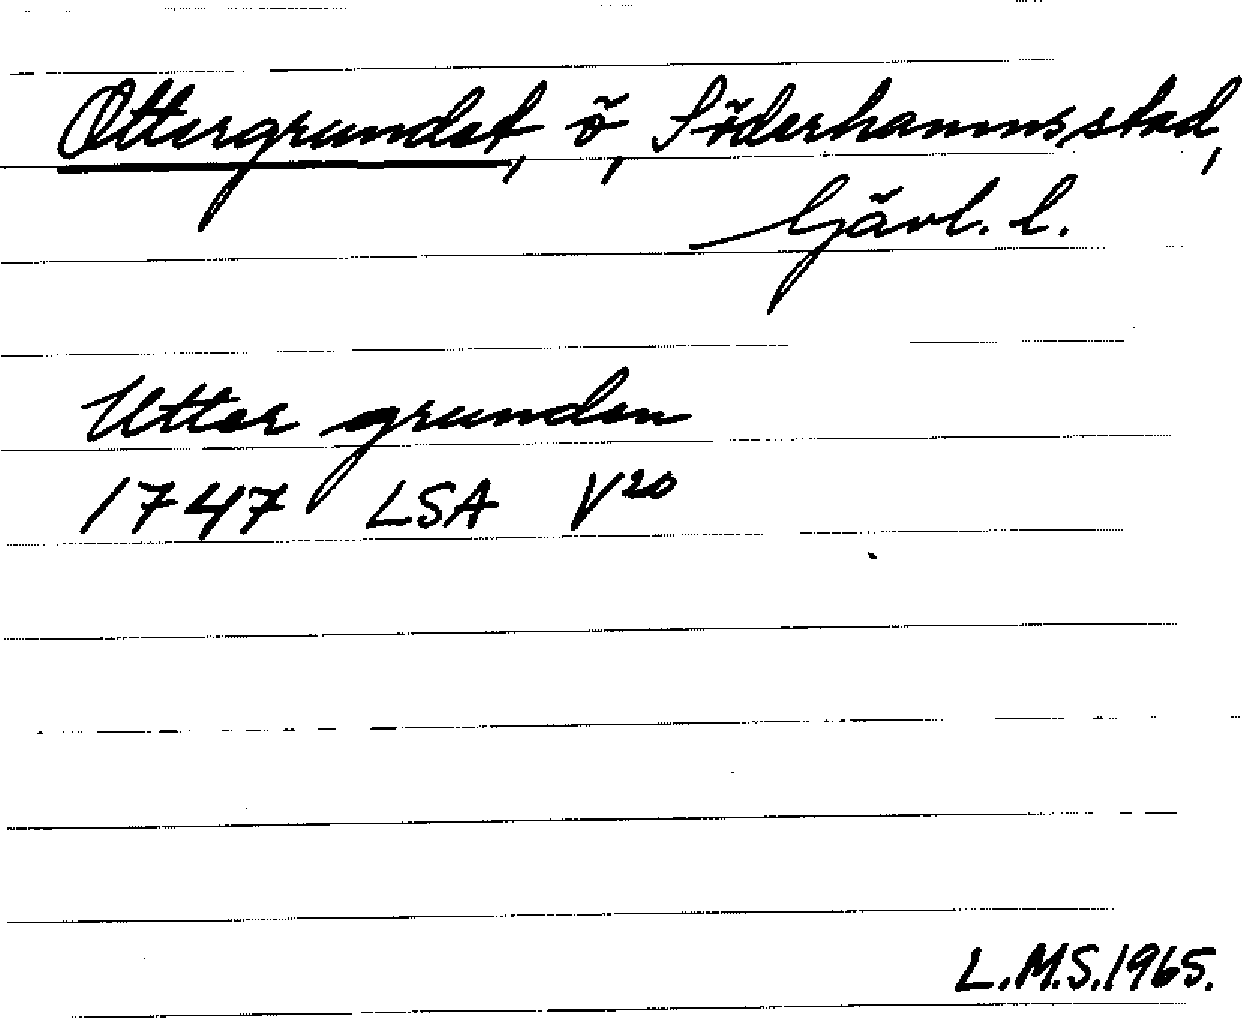 Ottergrundet, ö, Söderhamns stad,
Gävl. l.
Utter grunden
1747 LSA V20
L.M.S. 1965.